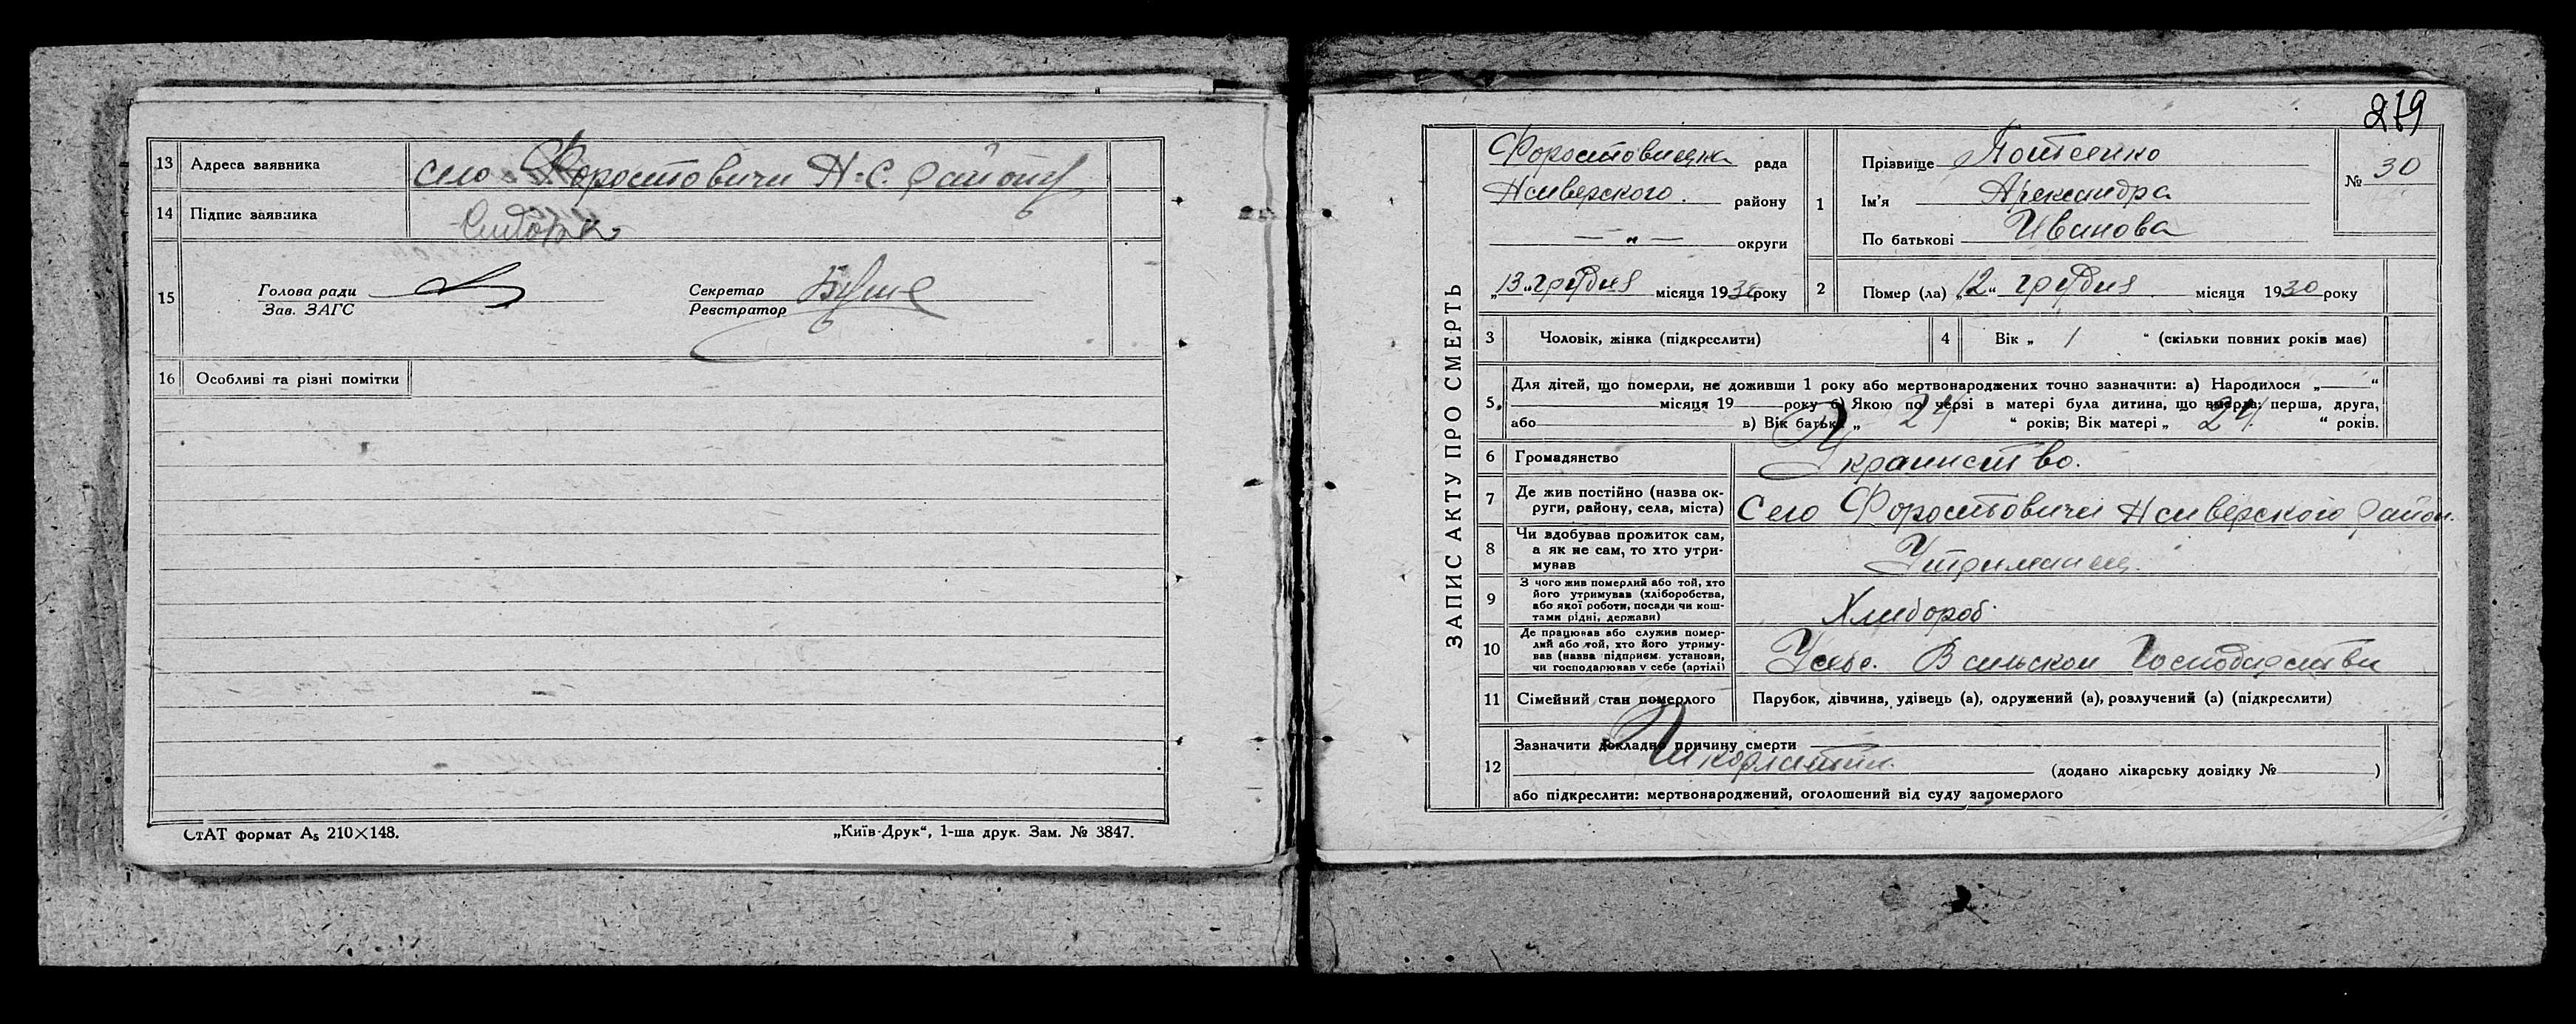 13 Адреса заявника село Форостовичи Н-С. району
14 Підпис заявника
15 Голова ради
Зав. ЗАГС
Секретар
Реєстратор
16 Особливі та різні помітки
СтАТ формат А₅ 210×148.
„Київ-Друк“, 1-ша друк. Зам. № 3847.
279
ЗАПИС АКТУ ПРО СМЕРТЬ
Форостовицка рада
Нсиверского. району
— „ — округи
„13„ грудня місяця 1930 року
1 Прізвище
Ім'я Александра
По батькові Иванова
№ 30
2 Помер (ла) „12“ грудня місяця 1930 року
3 Чоловік, жінка (підкреслити)
4 Вік „ 1 “ (скільки повних років має)
5. Для дітей, що померли, не доживши 1 року або мертвонароджених точно зазначити: а) Народилося „ “
місяця 19 року б) Якою по черзі в матері була дитина, що вмерла: перша, друга,
або в) Вік батька „ 24 “ років; Вік матері „ 24 “ років.
6 Громадянство
7 Де жив постійно (назва ок-
руги, району, села, міста) Село Форостовичи Нсиверского район.
8 Чи здобував прожиток сам,
а як не сам, то хто утри-
мував Утриманец.
9 З чого жив померлий або той, хто
його утримував (хліборобства,
або якої роботи, посади чи кош-
тами рідні, держави) Хлибороб.
10 Де працював або служив помер-
лий або той, хто його утриму-
вав (назва підприєм. установи,
чи господарював у себе (артілі) У себе. В сильском Господарстви
11 Сімейний стан померлого Парубок, дівчина, удівець (а), одружений (а), розлучений (а) (підкреслити)
12 Зазначити докладно причину смерти
(додано лікарську довідку № )
або підкреслити: мертвонароджений, оголошений від суду запомерлого